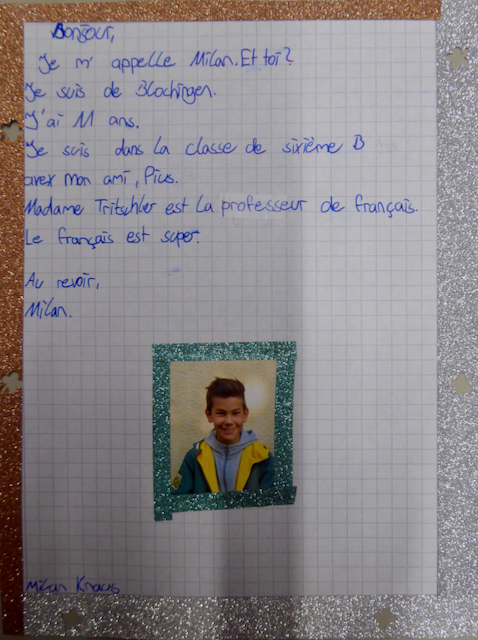 Bonjour,
Je m'appelle Milan. Et toi?
Je suis de Blochingen.
J'ai 11 ans.
Je suis dans la classe de sixième B
avex mon ami, Pius.
Madame Tritschler est la professeur de français.
Le français est super.
Au revoir,
Milan.
Milan Knaus